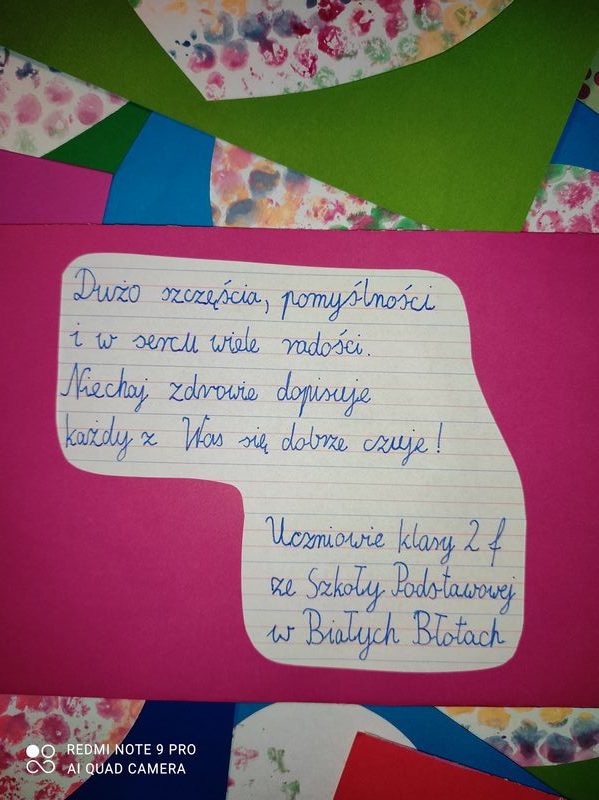 Dużo szczęścia, pomyślności
i w sercu wiele radości.
Niechaj zdrowie dopisuje
każdy z Was się dobrze czuje!
Uczniowie klasy 2 f
ze Szkoły Podstawowej
w Białych Błotach
REDMI NOTE 9 PRO
AI QUAD CAMERA